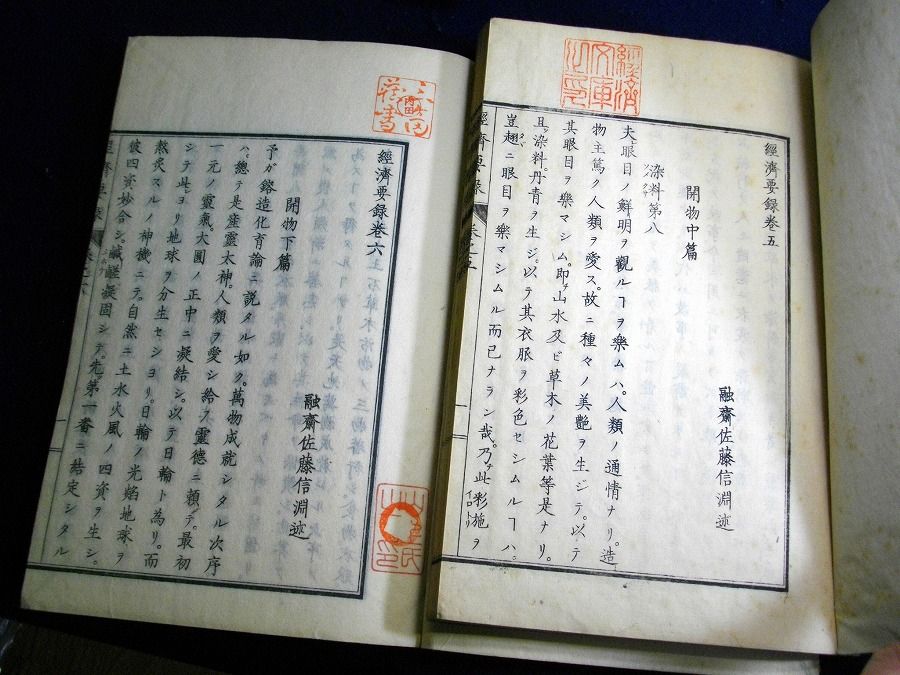 經濟要録巻五
融齋佐藤信淵述
開物中篇
染料第八
夫眼目ノ鮮明ヲ觀ルヿヲ樂ムハ。人類ノ通情ナリ。造
物主篤ク人類ヲ愛ス。故ニ種々ノ美艶ヲ生ジテ。以テ
其眼目ヲ樂マシム。即山水及ビ草木ノ花葉等是ナリ。
且染料丹青ヲ生ジ。以テ其衣服ヲ彩色セシムルヿハ。
豈翅ニ眼目ヲ樂マシムル而已ナラン哉。乃此彩施ヲ
經濟要録
經濟文庫之印
經濟要録巻六
融齋佐藤信淵述
開物下篇
予ガ鎔造化育論ニ説タル如ク。萬物成就シタル次序
ハ。總テ是産靈大神。人類ヲ愛シ給フ靈德ニ頼テ。最初
一元ノ靈氣。大圓ノ正中ニ凝結シ。以テ日輪ト為リ。而
シテ此ヨリ地球ヲ分生セシヨリ。日輪ノ光焔地球ヲ
熱炙スルノ神機ニテ。自然ニ土水風火ノ四資ヲ生シ。
彼四資妙合シ。鹹鹺凝固シテ。先第一番ニ結定シタル
經濟要録
藏書